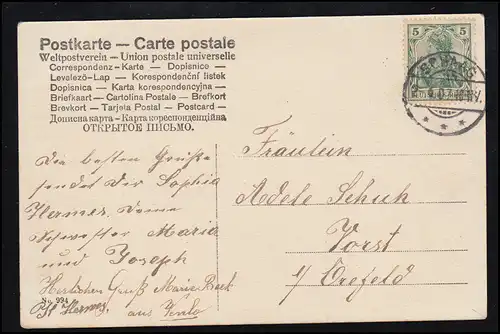 Postkarte — Carte postale
Weltpostverein — Union postale universelle
Correspondenz-Karte — Dopisnice —
Levelező-Lap — Korespondenční listek
Dopisnica — Karta korespondencyjna —
Briefkaart — Cartolina Postale — Brefkort
Brevkort — Tarjeta Postal — Postcard —
Дописна карта — Карта кореспонденційна
ОТКРЫТОЕ ПИСЬМО.
5 5
Die besten Grüße
sendet dir Sophia
Hermes, deine
Schwester Maria
und Joseph
Herlichen Gruß Maria
Hermes, aus Venlo
No. 994
Fräulein
Adele Schuh
Vorst
b/ Crefeld